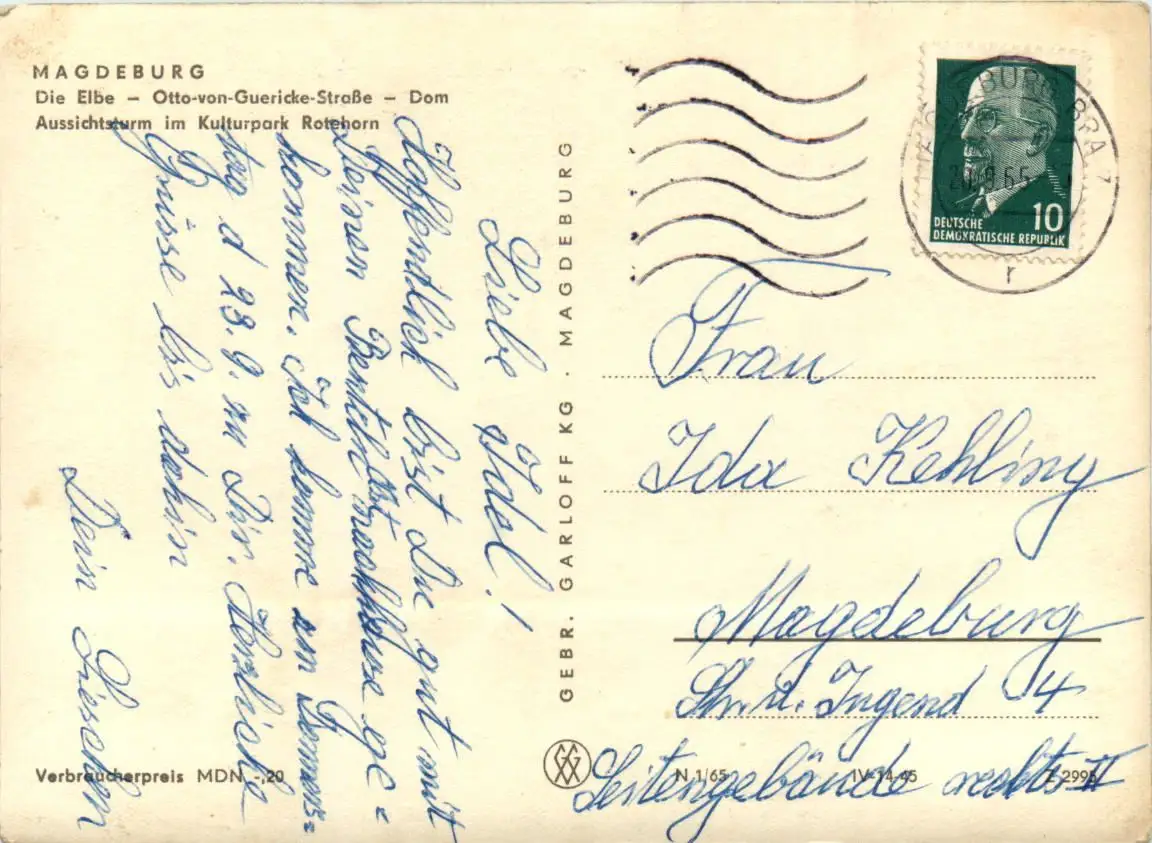 MAGDEBURG
Die Elbe – Otto-von-Guericke-Straße – Dom
Aussichtsturm im Kulturpark Rotehorn
Liebe Idel!
Hoffentlich bist Du gut mit
Deinen
kommen. Ich komme am Donners=
tag d 23.9. zu Dir. Herzliche
Grüsse bis dahin
Dein Lieschen
GEBR. GARLOFF KG · MAGDEBURG
DEUTSCHE
DEMOKRATISCHE REPUBLIK
10
Frau
Ida Kehling
Magdeburg
Str. d. Jugend 4
Seitengebäude rechts II
Verbraucherpreis MDN -,20
N 1/65
IV-14-45
Z 2995